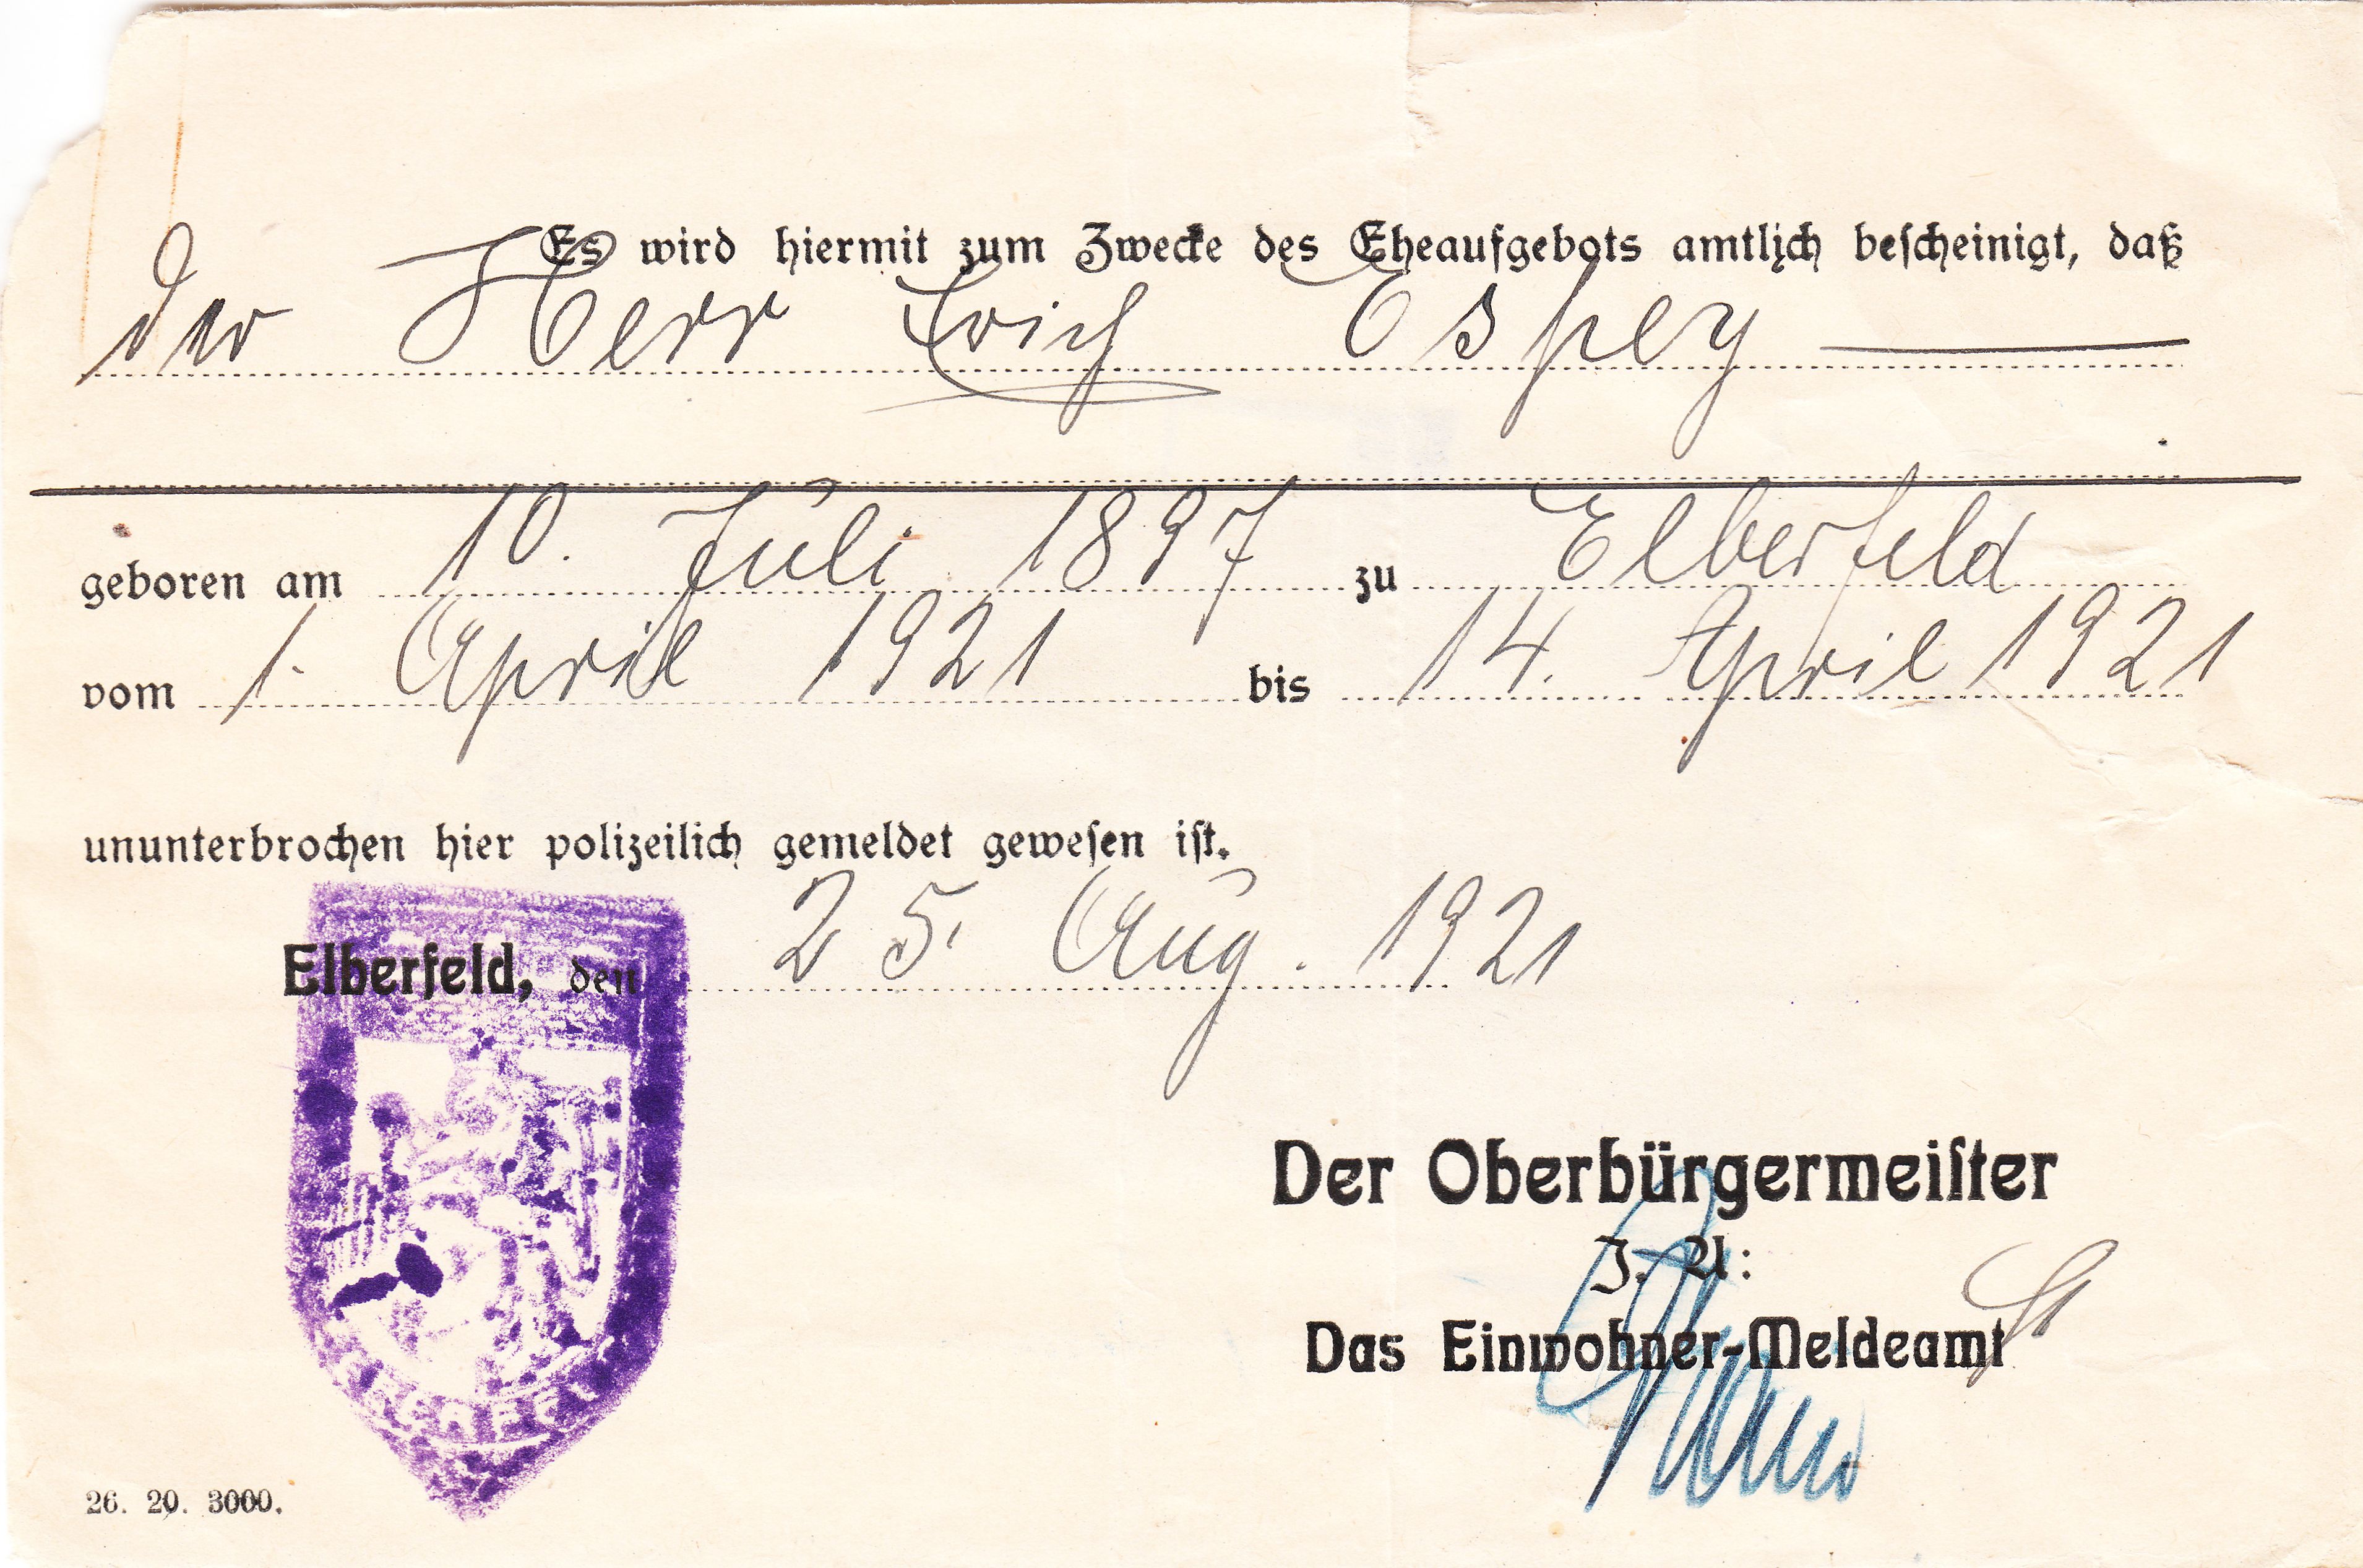 Es wird hiermit zum Zwecke des Eheaufgebots amtlich bescheinigt, daß
der Herr Erich Espey
geboren am 10. Juli 1897 zu Elberfeld
vom 1. April 1921 bis 14. April 1921
ununterbrochen hier polizeilich gemeldet gewesen ist.
Elberfeld, den 25. Aug. 1921
Der Oberbürgermeister
J. A:
Das Einwohner-Meldeamt
26. 20. 3000.